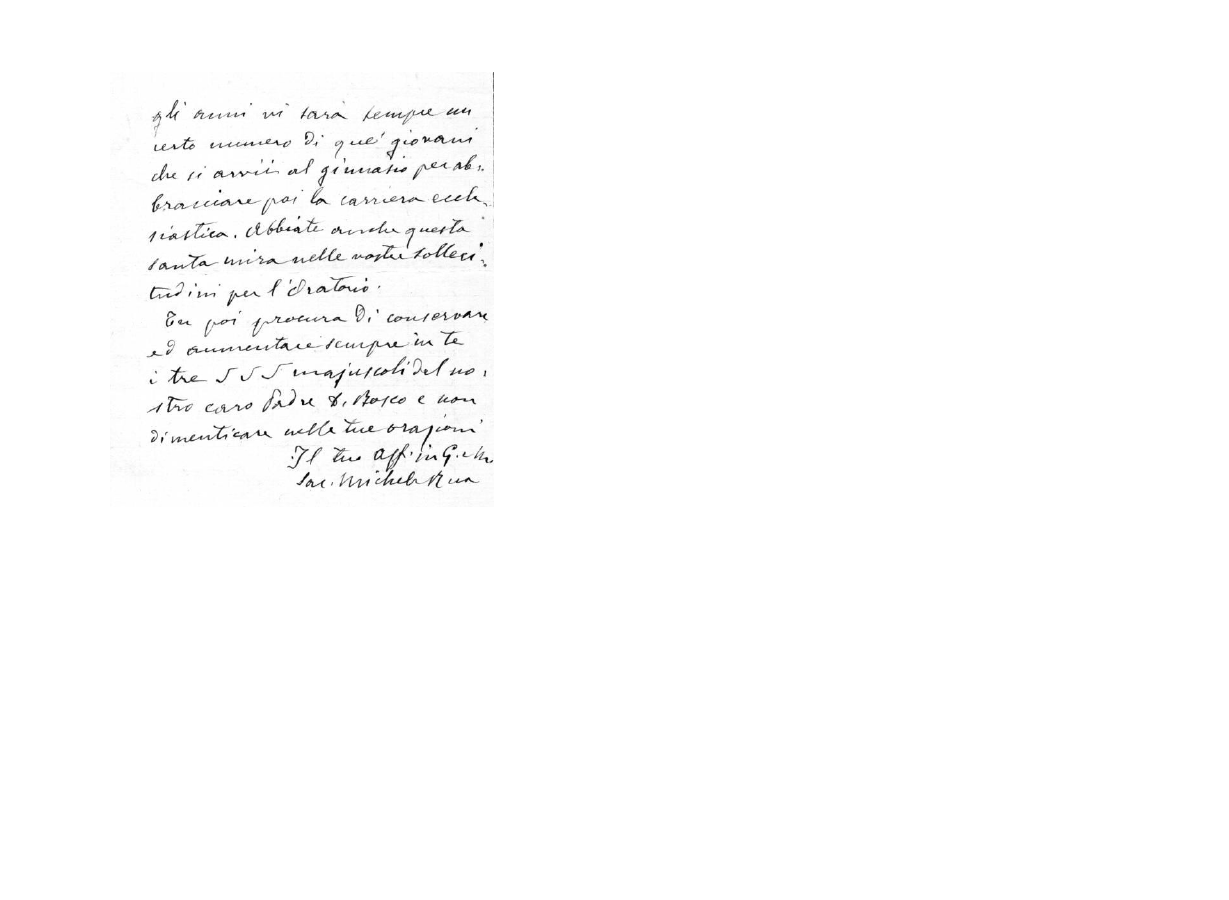 gli anni vi sarà sempre un
certo numero di que' giovani
che si avvii al ginnasio per ab-
bracciare poi la carriera eccle-
siastica. Abbiate anche questa
santa mira nelle vostre solleci-
tudini per l'Oratorio.
Tu poi procura di conservare
ed aumentare sempre in te
i tre S S S majuscoli del no-
stro caro Padre D. Bosco e non
dimenticare nelle tue orazioni
Il tuo Aff. in G. e M.
Sac. Michele Rua